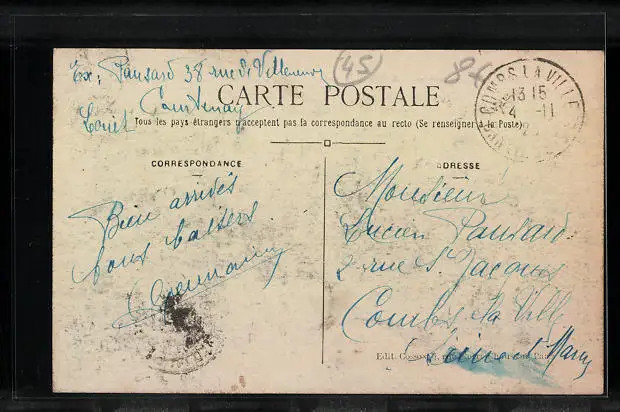 Ex. Pansard 38 rue de Villeneuve
Courtenay
Loiret
(45)
8f
COMBS LA VILLE
13 15
4 -11
CARTE POSTALE
Tous les pays étrangers n'acceptent pas la correspondance au recto (Se renseigner à la Poste)
CORRESPONDANCE
Bien arrivés
bons baisers
Germaine
ADRESSE
Monsieur
Lucien Pansard
2 rue St Jacques
Combs la Ville
Seine et Marne
Edit.